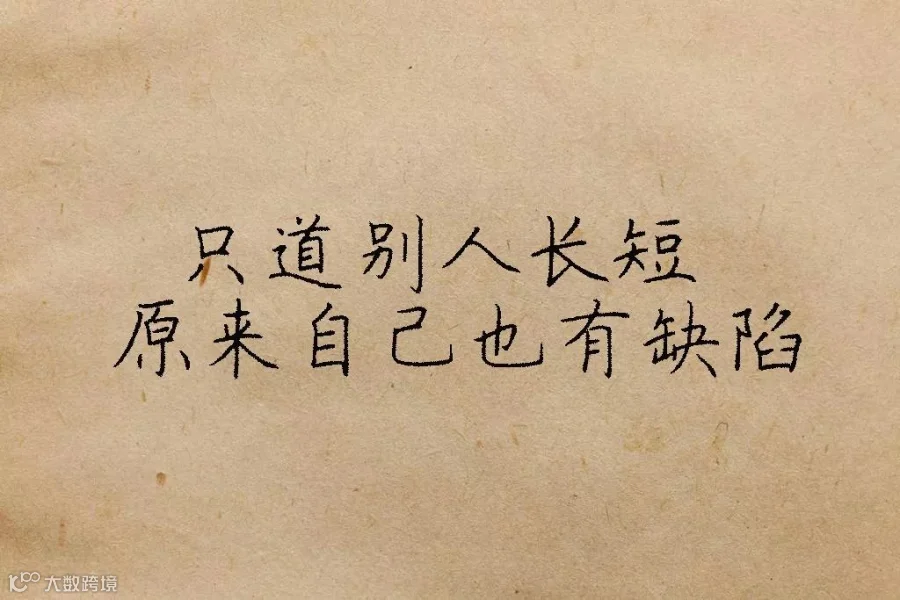 只道别人长短
原来自己也有缺陷
大数跨境